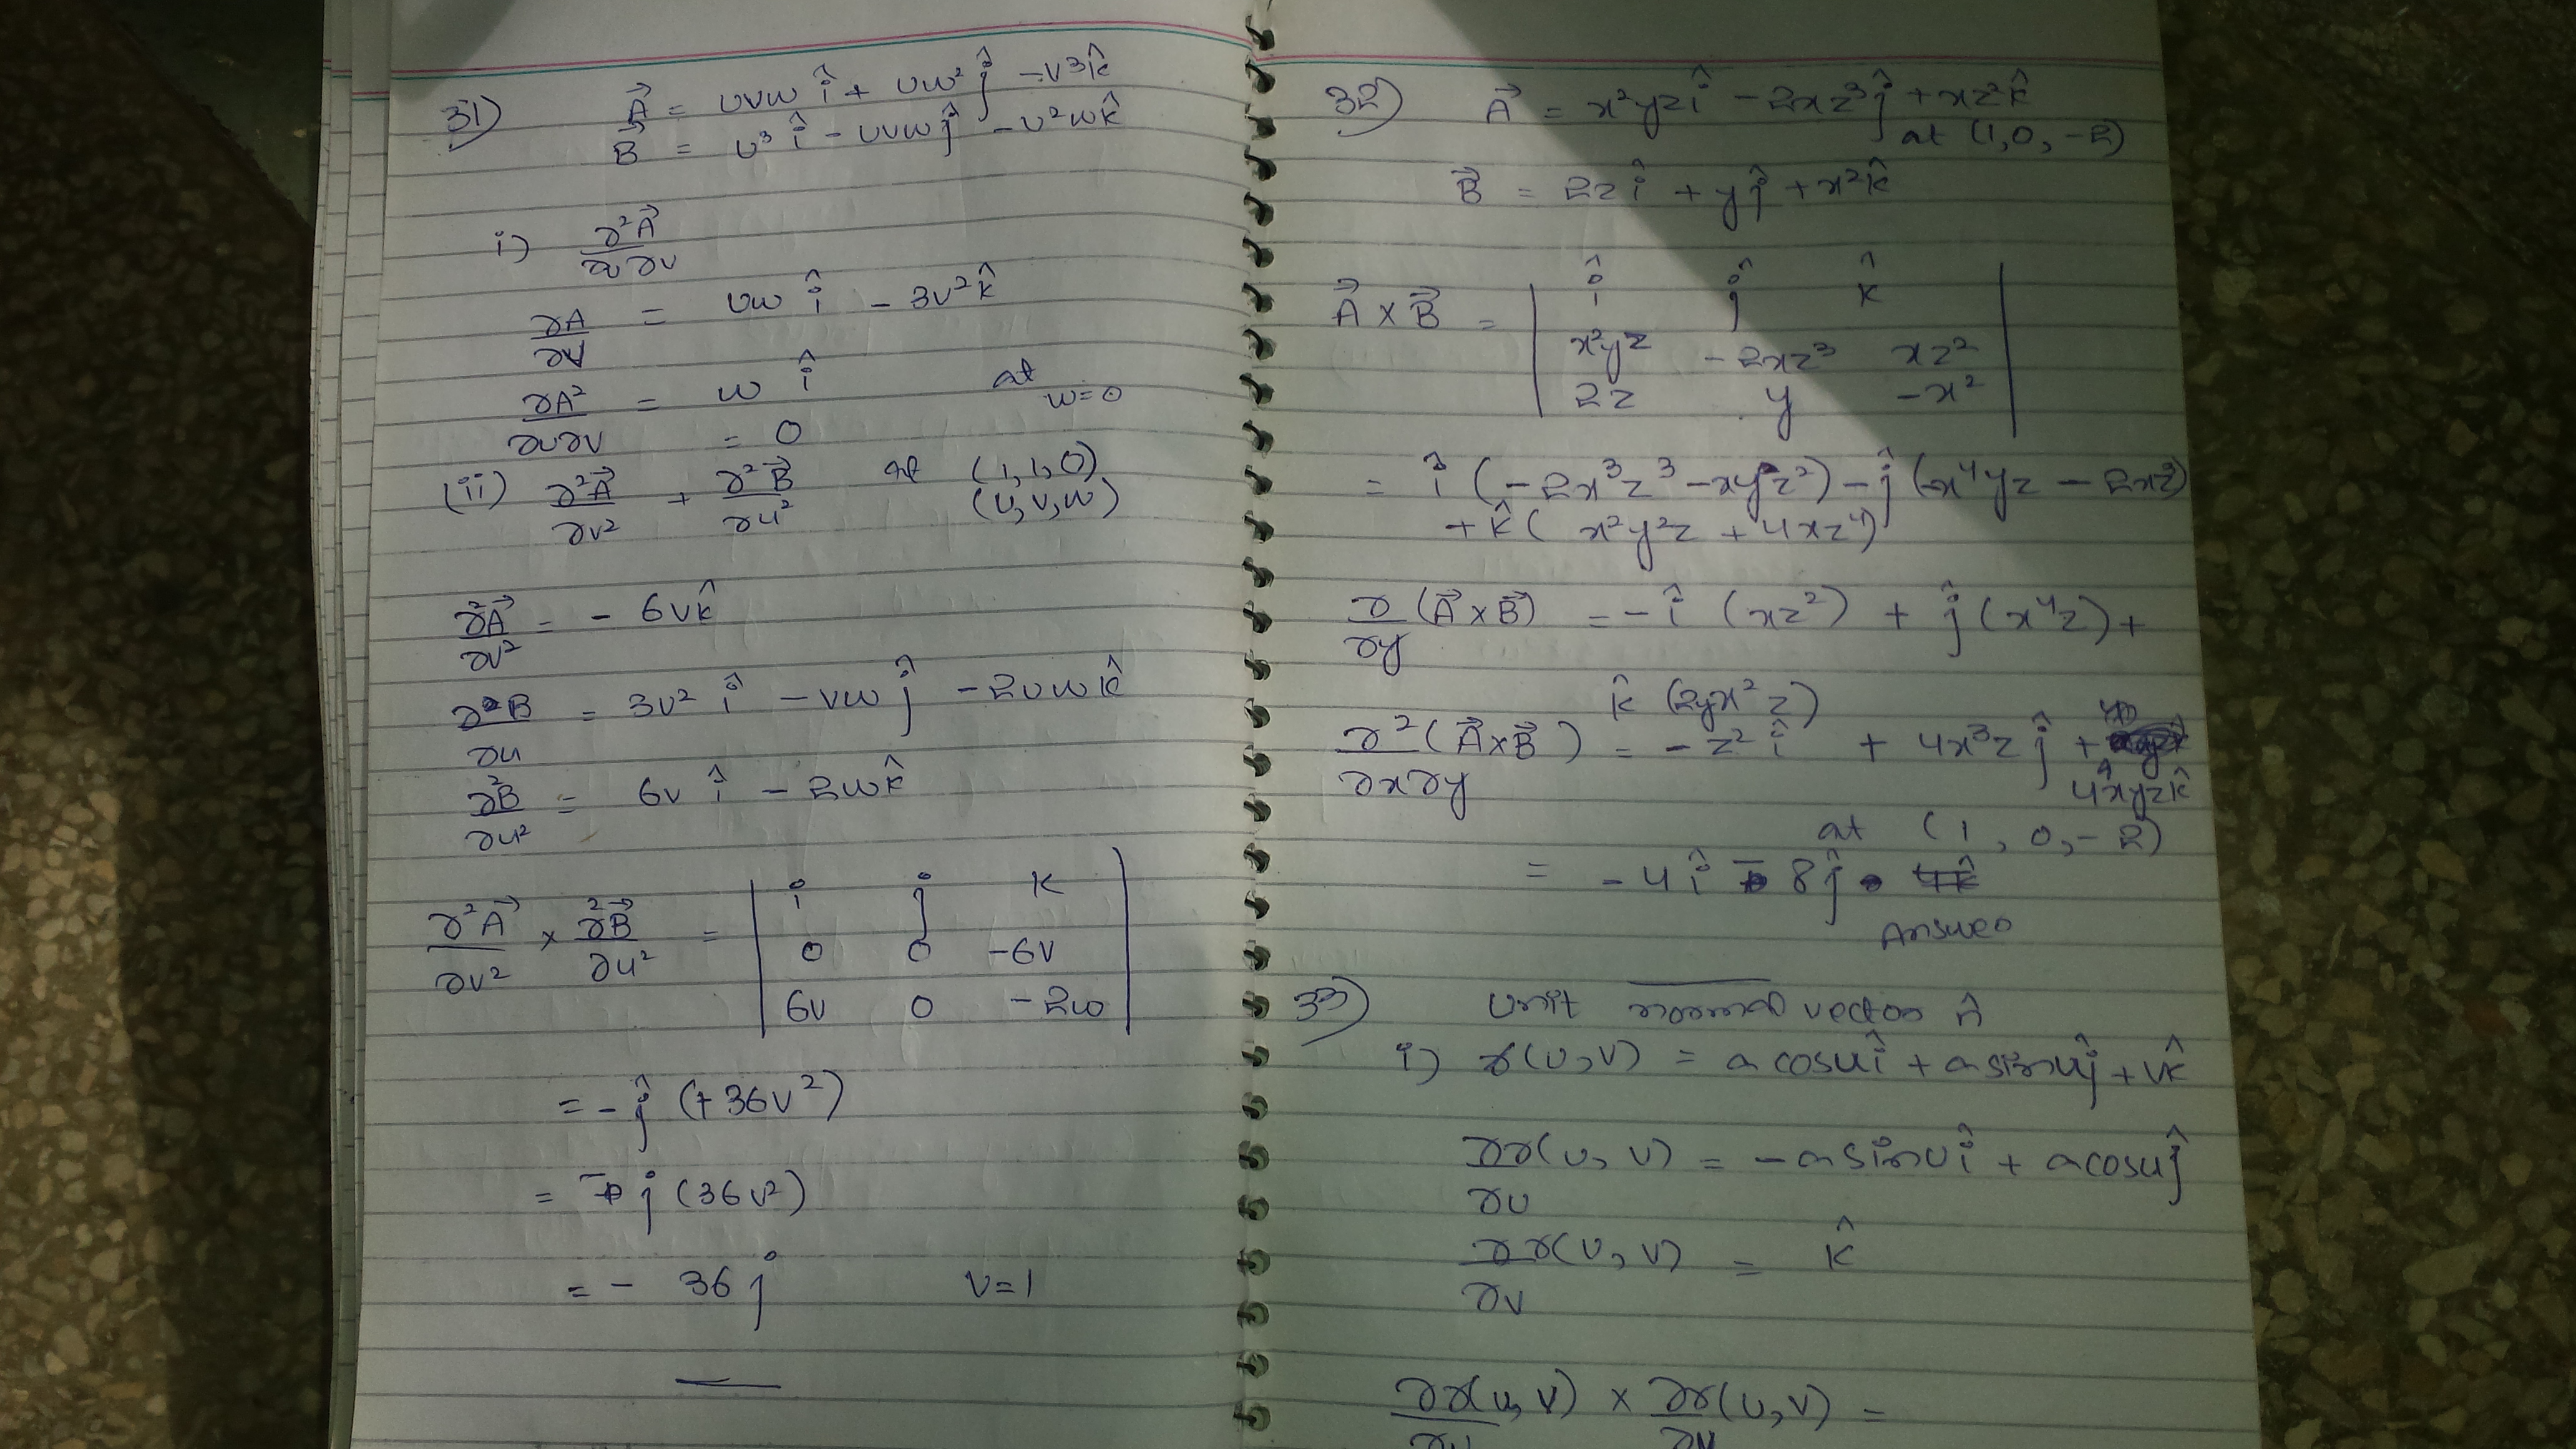 31) A⃗ = uvw î + uw² ĵ - v³ k̂
B⃗ = u³ î - uvw ĵ - u²w k̂
i) ∂²A⃗/∂u∂v
∂A/∂v = uw î - 3v² k̂
∂A²/∂u∂v = w î at w=0
= 0
(ii) ∂²A⃗/∂v² + ∂²B⃗/∂u² at (1,1,0)
(u,v,w)
∂²A⃗/∂v² = - 6v k̂
∂B/∂u = 3v² î - vw ĵ - 2uw k̂
∂²B/∂u² = 6v î - 2w k̂
∂²A⃗/∂v² × ∂²B⃗/∂u² = | i j k
0 0 -6v
6v 0 -2w |
= - ĵ (+36v²)
= - j (36v²)
= - 36 j v=1
32) A⃗ = x²yz î - 2xz³ ĵ + xz² k̂
at (1,0,-2)
B⃗ = 2z î + y ĵ + x² k̂
A⃗ × B⃗ = | î ĵ k̂
x²yz -2xz³ xz²
2z y -x² |
= î (-2x³z³ - xyz²) - ĵ (x⁴yz - 2xz³)
+ k̂ (x²y²z + 4xz⁴)
∂/∂y (A⃗ × B⃗) = - î (xz²) + ĵ (x⁴z) +
k̂ (2yx²z)
∂²(A⃗×B⃗)/∂x∂y = - z² î + 4x³z ĵ +
4xyz k̂
at (1, 0, -2)
= - 4 î - 8 ĵ
Answer
33) Unit normal vector n̂
i) r(u,v) = a cosu î + a sinu ĵ + v k̂
∂r(u, v)/∂u = - a sinu î + a cosu ĵ
∂r(u, v)/∂v = k̂
∂r(u,v)/∂u × ∂r(u,v)/∂v =